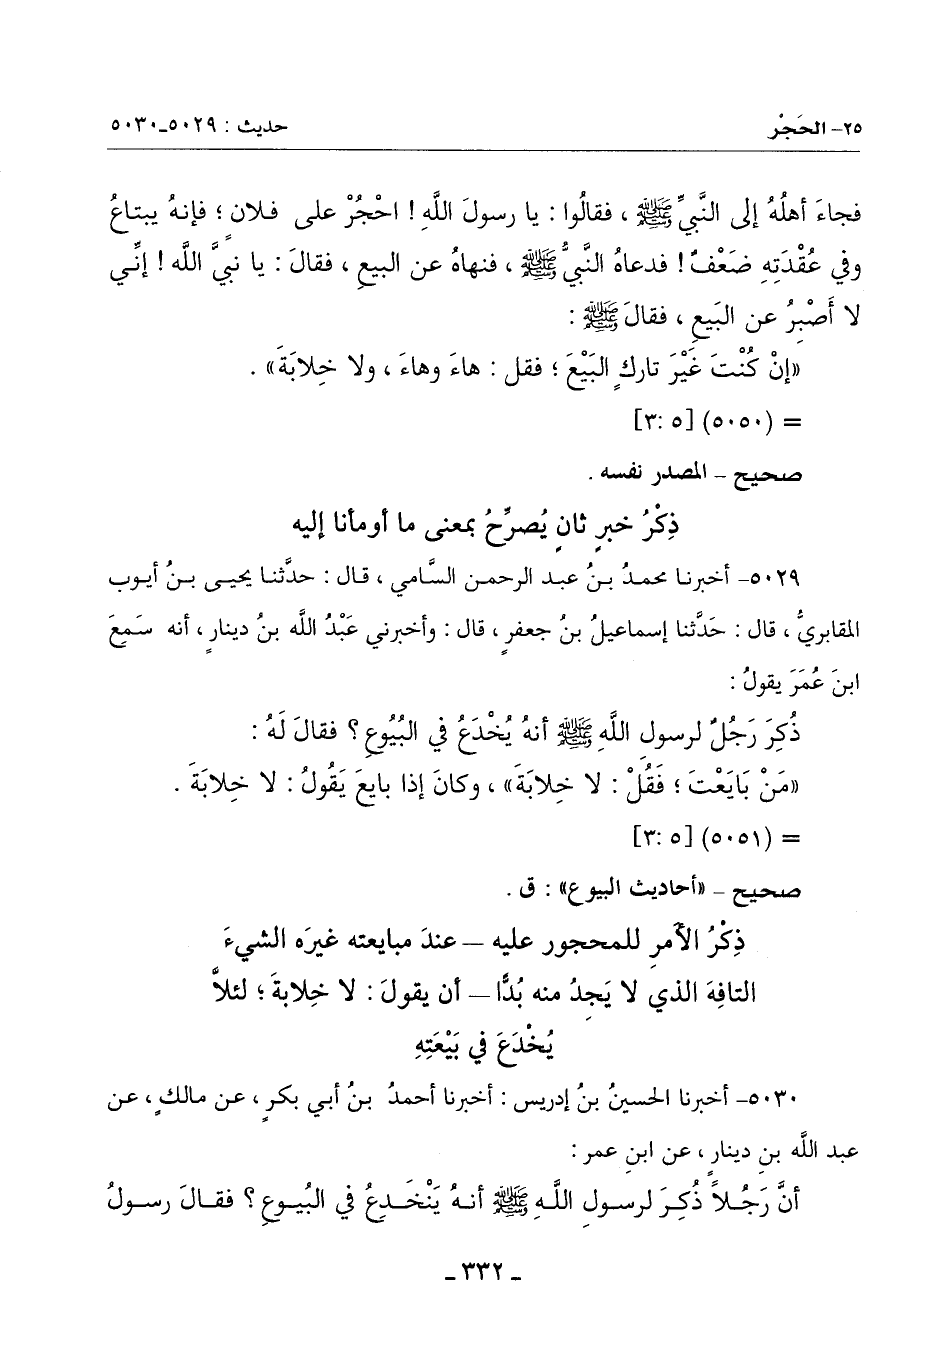 ٢٥- الحَجْر
حديث : ٥٠٢٩-٥٠٣٠
فجاءَ أهلُهُ إلى النَّبيِّ ﷺ ، فقالُوا : يا رسولَ اللَّهِ ! احْجُرْ على فلانٍ ؛ فإنهُ يبتاعُ
وفي عُقْدَتِهِ ضَعْفٌ ! فدعاهُ النَّبيُّ ﷺ ، فنهاهُ عن البيعِ ، فقالَ : يا نبيَّ اللَّه ! إنِّي
لا أَصْبِرُ عن البَيعِ ، فقالَ ﷺ :
«إنْ كُنْتَ غَيْرَ تاركٍ البَيْعَ ؛ فقل : هاءَ وهاءَ ، ولا خِلابَةَ» .
= (٥٠٥٠) [٥ :٣]
صحيح - المصدر نفسه .
ذِكْرُ خبرٍ ثانٍ يُصرِّحُ بمعنى ما أومأنا إليه
٥٠٢٩- أخبرنا محمدُ بنُ عبد الرحمن السَّامي ، قال : حدَّثنا يحيى بنُ أيوب
المقابريُّ ، قال : حَدَّثنا إسماعيلُ بنُ جعفرٍ ، قال : وأخبرني عَبْدُ اللَّه بنُ دينارٍ ، أنه سَمِعَ
ابنَ عُمَرَ يقولُ :
ذُكِرَ رَجُلٌ لرسولِ اللَّهِ ﷺ أنهُ يُخْدَعُ في البُيُوعِ ؟ فقالَ لَهُ :
«مَنْ بَايَعْتَ ؛ فَقُلْ : لا خِلابَةَ» ، وكانَ إذا بايعَ يَقُولُ : لا خِلابَةَ .
= (٥٠٥١) [٥ :٣]
صحيح - «أحاديث البيوع» : ق .
ذِكْرُ الأمرِ للمحجور عليه – عندَ مبايعته غيرَه الشيءَ
التافِهَ الذي لا يَجِدُ منه بُدًّا – أن يقولَ : لا خِلابةَ ؛ لئلاَّ
يُخْدَعَ في بَيْعَتِهِ
٥٠٣٠- أخبرنا الحسينُ بنُ إدريس : أخبرنا أحمدُ بنُ أبي بكرٍ ، عن مالكٍ ، عن
عبد اللَّه بنِ دينارٍ ، عن ابنِ عمر :
أنَّ رَجُلاً ذُكِرَ لرسولِ اللَّهِ ﷺ أنهُ يَنْخَدِعُ في البُيوعِ ؟ فقالَ رسولُ
- ٣٣٢ -